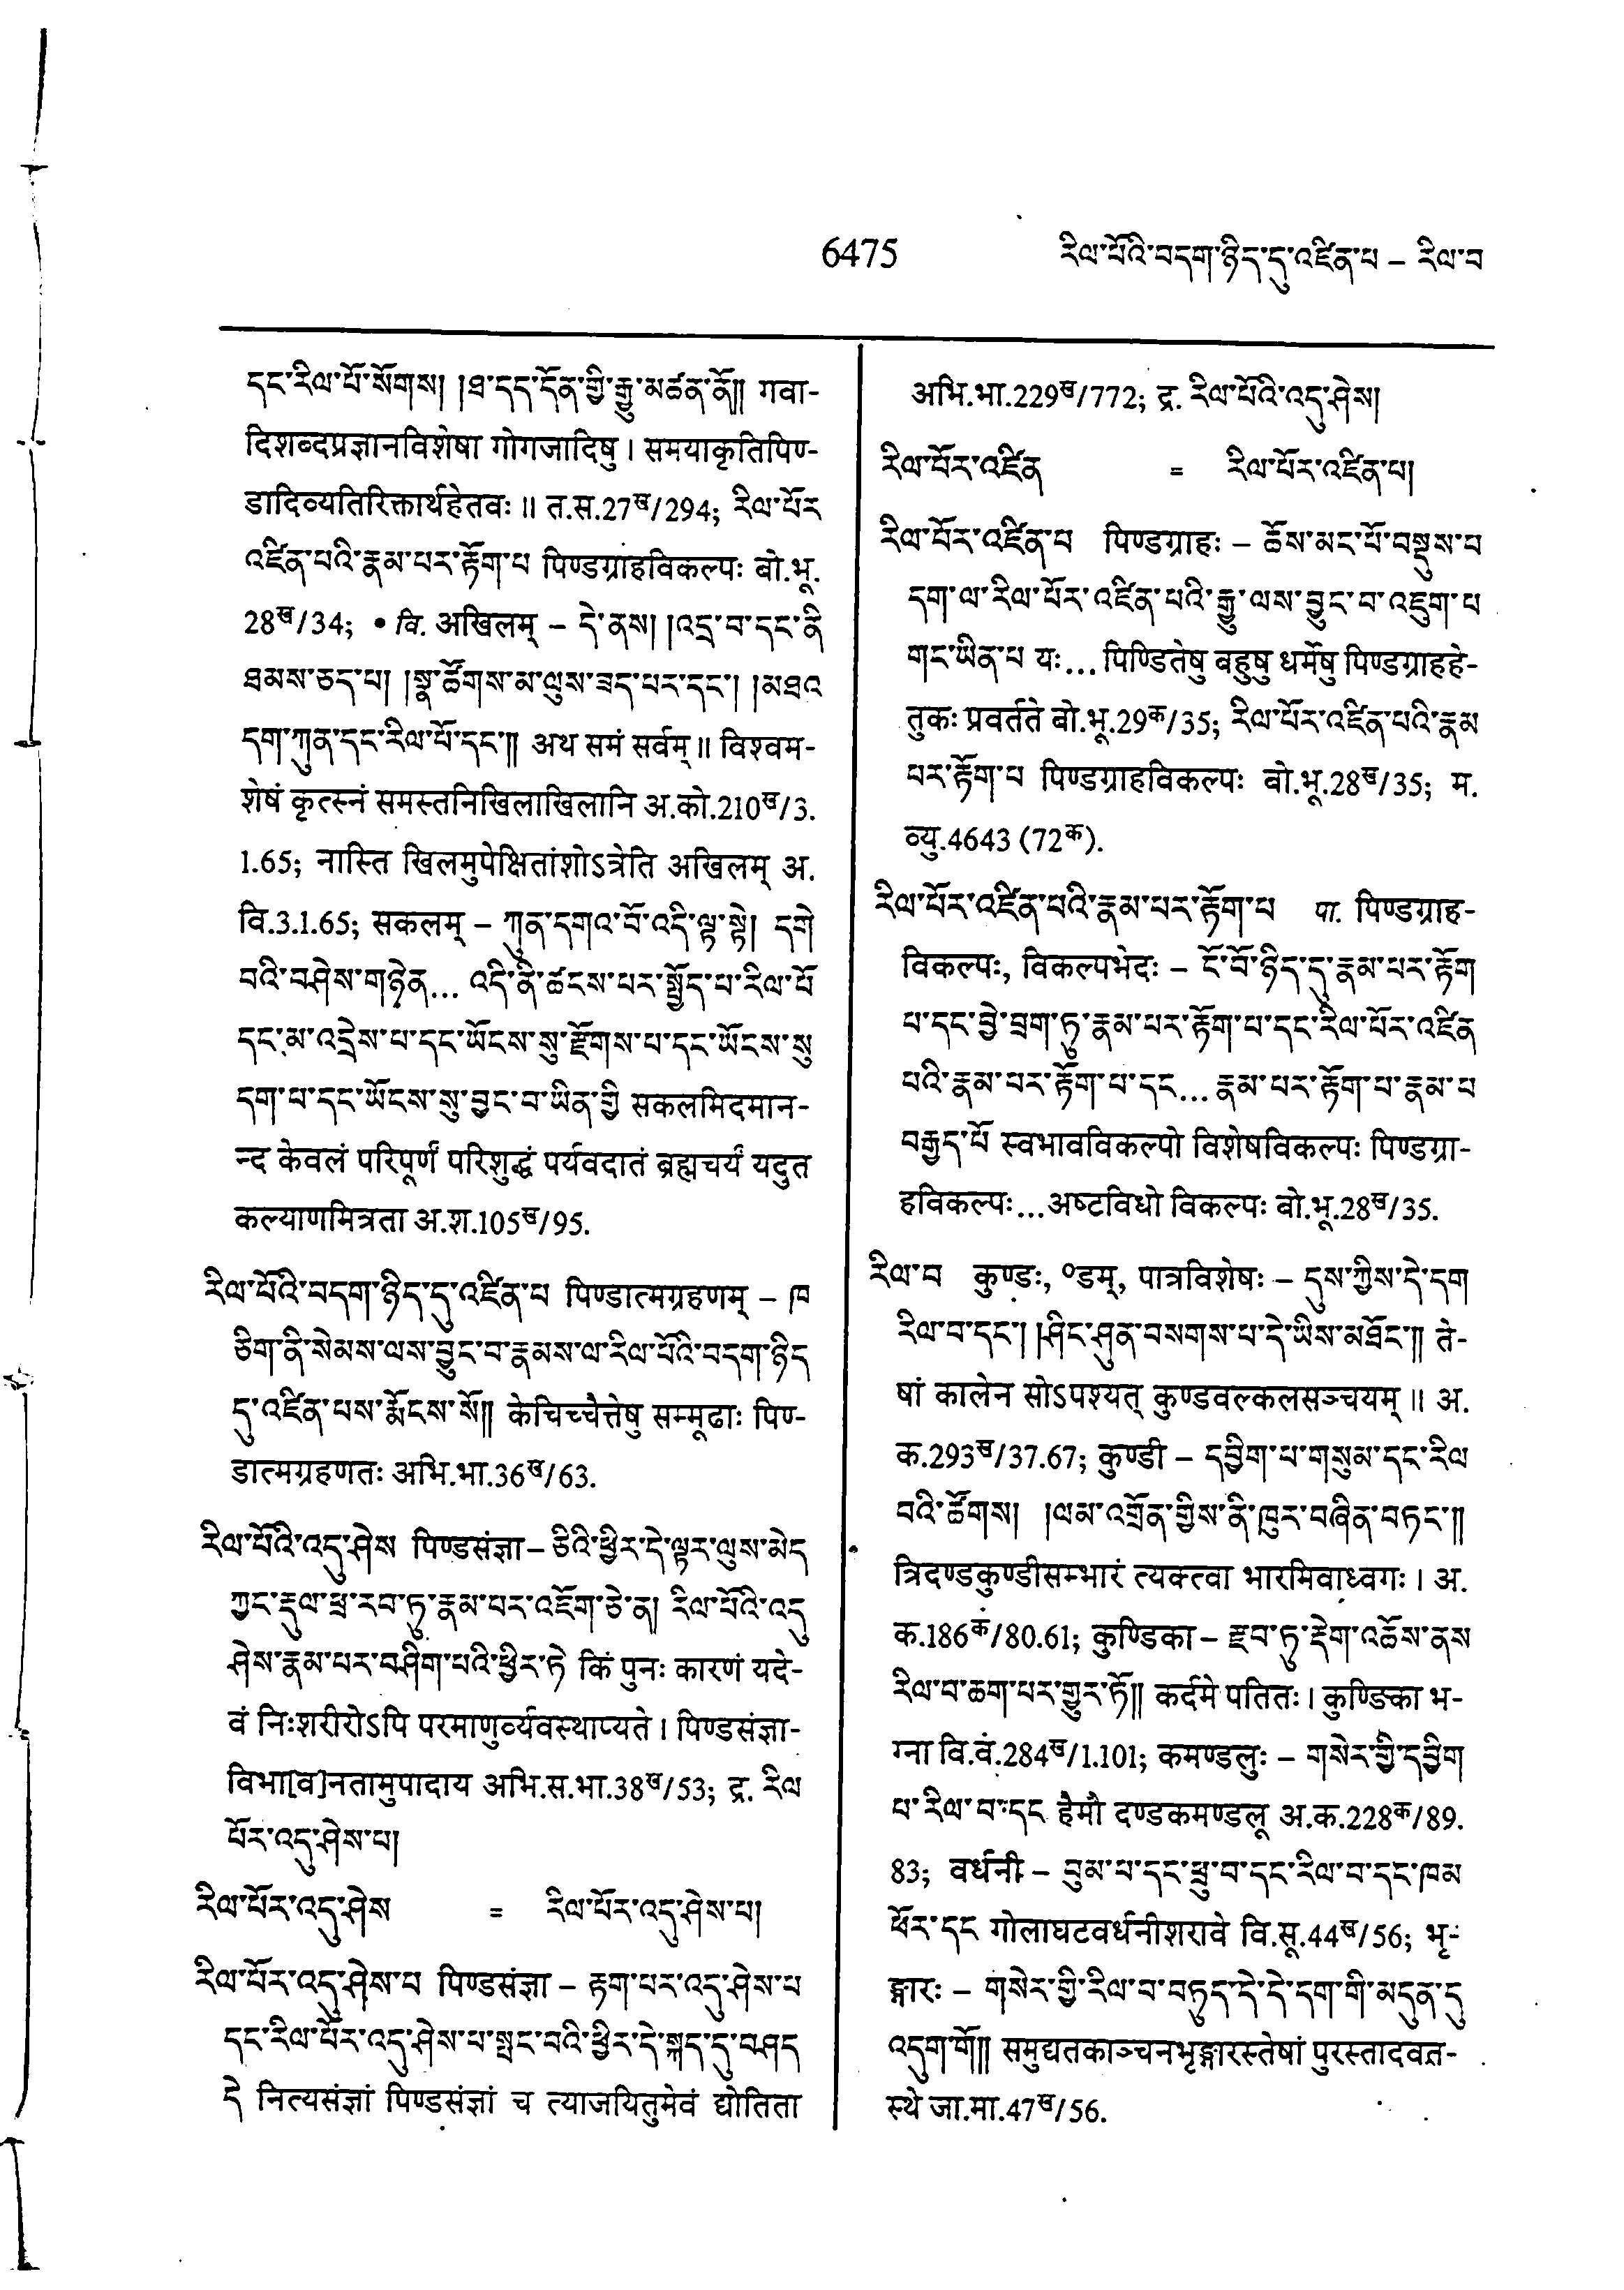 6475 རིལ་པོའི་བདག་ཉིད་དུ་འཛིན་པ – རིལ་བ
དང་རིལ་པོ་སོགས། །ཐ་དད་དོན་གྱི་རྒྱུ་མཚན་ནོ༎ गवा-
दिशब्दप्रज्ञानविशेषा गोगजादिषु । समयाकृतिपिण-
डादिव्यतिरिक्तार्थहेतवः ॥ त.स.27ख/294; རིལ་པོར
འཛིན་པའི་རྣམ་པར་རྟོག་པ पिण्डग्राहविकल्पः बो.भू.
28ख/34; • वि. अखिलम् – དེ་ནས། །འདྲ་བ་དང་ནི
ཐམས་ཅད་པ། །སྣ་ཚོགས་མ་ལུས་ཟད་པར་དང་། །མཐའ
དག་ཀུན་དང་རིལ་པོ་དང་༎ अथ समं सर्वम् ॥ विश्वम-
शेषं कृत्स्नं समस्तनिखिलाखिलानि अ.को.210ख/3.
1.65; नास्ति खिलमुपेक्षितांशोऽत्रेति अखिलम् अ.
वि.3.1.65; सकलम् – ཀུན་དགའ་བོ་འདི་ལྟ་སྟེ། དགེ
བའི་བཤེས་གཉེན... འདི་ནི་ཚངས་པར་སྤྱོད་པ་རིལ་པོ
དང་མ་འདྲེས་པ་དང་ཡོངས་སུ་རྫོགས་པ་དང་ཡོངས་སུ
དག་པ་དང་ཡོངས་སུ་བྱང་བ་ཡིན་གྱི सकलमिदमान-
न्द केवलं परिपूर्णं परिशुद्धं पर्यवदातं ब्रह्मचर्यं यदुत
कल्याणमित्रता अ.श.105ख/95.
རིལ་པོའི་བདག་ཉིད་དུ་འཛིན་པ पिण्डात्मग्रहणम् – ཁ
ཅིག་ནི་སེམས་ལས་བྱུང་བ་རྣམས་ལ་རིལ་པོའི་བདག་ཉིད
དུ་འཛིན་པས་རྨོངས་སོ༎ केचिच्चैत्तेषु सम्मूढाः पिण-
डात्मग्रहणतः अभि.भा.36ख/63.
རིལ་པོའི་འདུ་ཤེས पिण्डसंज्ञा – ཅིའི་ཕྱིར་དེ་ལྟར་ལུས་མེད
ཀྱང་རྡུལ་ཕྲ་རབ་ཏུ་རྣམ་པར་འཇོག་ཅེ་ན། རིལ་པོའི་འདུ
ཤེས་རྣམ་པར་བཤིག་པའི་ཕྱིར་ཏེ किं पुनः कारणं यदे-
वं निःशरीरोऽपि परमाणुर्व्यवस्थाप्यते । पिण्डसंज्ञा-
विभा[व]नतामुपादाय अभि.स.भा.38ख/53; द्र. རིལ
པོར་འདུ་ཤེས་པ།
རིལ་པོར་འདུ་ཤེས = རིལ་པོར་འདུ་ཤེས་པ།
རིལ་པོར་འདུ་ཤེས་པ पिण्डसंज्ञा – རྟག་པར་འདུ་ཤེས་པ
དང་རིལ་པོར་འདུ་ཤེས་པ་སྤང་བའི་ཕྱིར་དེ་སྐད་དུ་བཤད
དེ नित्यसंज्ञां पिण्डसंज्ञां च त्याजयितुमेवं द्योतिता
अभि.भा.229ख/772; द्र. རིལ་པོའི་འདུ་ཤེས།
རིལ་པོར་འཛིན = རིལ་པོར་འཛིན་པ།
རིལ་པོར་འཛིན་པ पिण्डग्राहः – ཆོས་མང་པོ་བསྡུས་པ
དག་ལ་རིལ་པོར་འཛིན་པའི་རྒྱུ་ལས་བྱུང་བ་འཇུག་པ
གང་ཡིན་པ यः... पिण्डितेषु बहुषु धर्मेषु पिण्डग्राहहे-
तुकः प्रवर्तते बो.भू.29क/35; རིལ་པོར་འཛིན་པའི་རྣམ
པར་རྟོག་པ पिण्डग्राहविकल्पः बो.भू.28ख/35; म.
व्यु.4643 (72क).
རིལ་པོར་འཛིན་པའི་རྣམ་པར་རྟོག་པ पा. पिण्डग्राह-
विकल्पः, विकल्पभेदः – ངོ་བོ་ཉིད་དུ་རྣམ་པར་རྟོག
པ་དང་བྱེ་བྲག་ཏུ་རྣམ་པར་རྟོག་པ་དང་རིལ་པོར་འཛིན
པའི་རྣམ་པར་རྟོག་པ་དང... རྣམ་པར་རྟོག་པ་རྣམ་པ
བརྒྱད་པོ स्वभावविकल्पो विशेषविकल्पः पिण्डग्रा-
हविकल्पः...अष्टविधो विकल्पः बो.भू.28ख/35.
རིལ་བ कुण्डः, ०डम्, पात्रविशेषः – དུས་ཀྱིས་དེ་དག
རིལ་བ་དང་། །ཤིང་ཤུན་བསགས་པ་དེ་ཡིས་མཐོང་༎ ते-
षां कालेन सोऽपश्यत् कुण्डवल्कलसञ्चयम् ॥ अ.
क.293ख/37.67; कुण्डी – དབྱིག་པ་གསུམ་དང་རིལ
བའི་ཚོགས། །ལམ་འགྲོན་གྱིས་ནི་ཁུར་བཞིན་བཏང་༎
त्रिदण्डकुण्डीसम्भारं त्यक्त्वा भारमिवाध्वगः । अ.
क.186क/80.61; कुण्डिका – རྫབ་ཏུ་རྡེག་འཆོས་ནས
རིལ་བ་ཆག་པར་གྱུར་ཏོ༎ कर्दमे पतितः । कुण्डिका भ-
ग्ना वि.वं.284ख/1.101; कमण्डलुः – གསེར་གྱི་དབྱིག
པ་རིལ་བ་དང हैमौ दण्डकमण्डलू अ.क.228क/89.
83; वर्धनी – བུམ་པ་དང་ཕྲུ་བ་དང་རིལ་བ་དང་ཁམ
ཕོར་དང गोलाघटवर्धनीशरावे वि.सू.44ख/56; भृ-
ङ्गारः – གསེར་གྱི་རིལ་བ་བཏུད་དེ་དེ་དག་གི་མདུན་དུ
འདུག་གོ༎ समुद्यतकाञ्चनभृङ्गारस्तेषां पुरस्तादवत-
स्थे जा.मा.47ख/56.